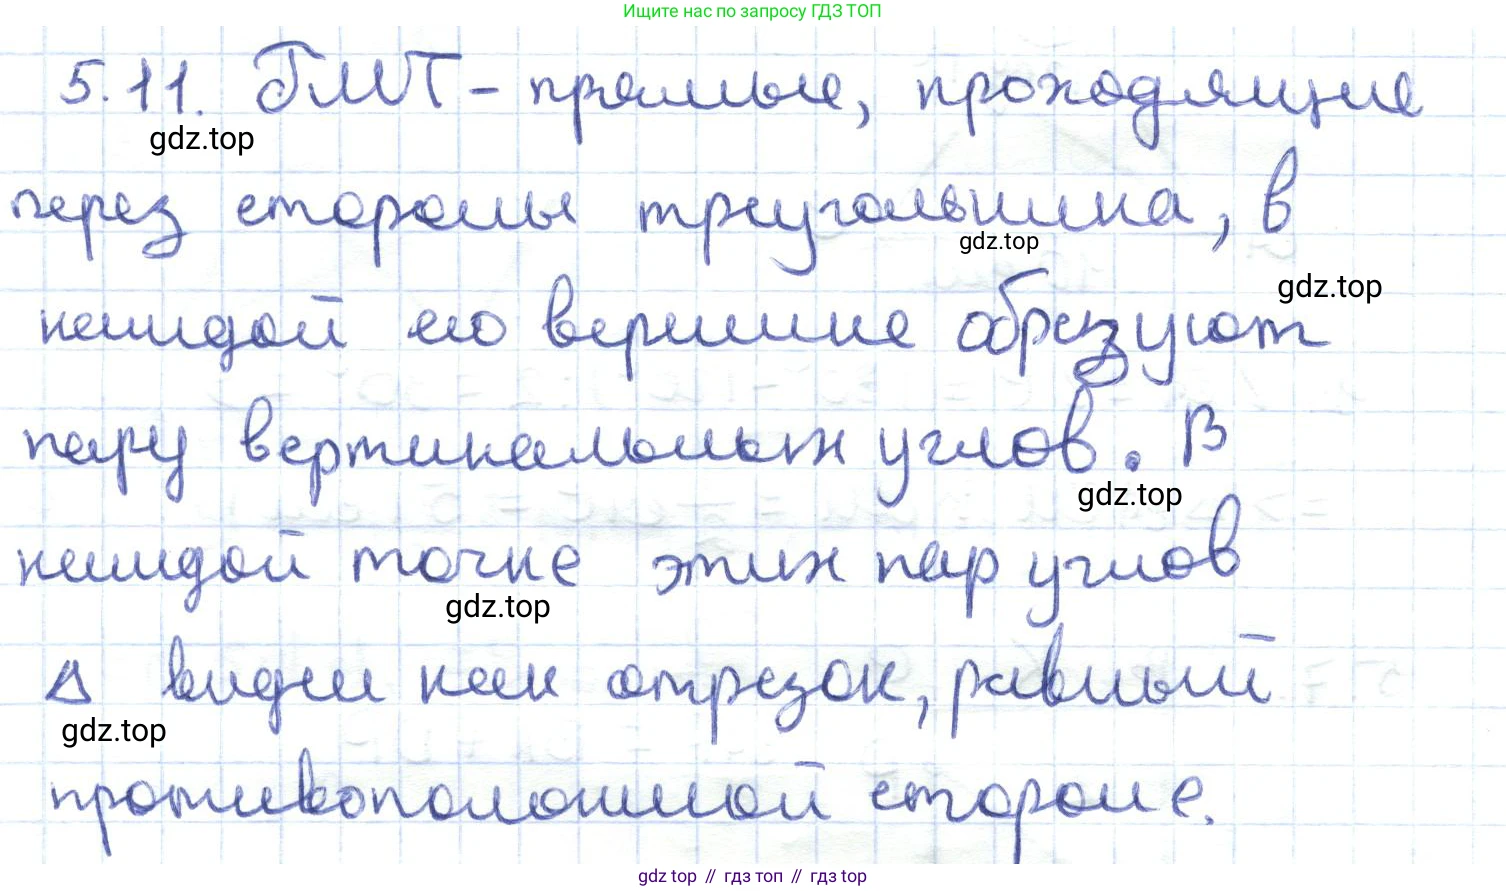 Ищите нас по запросу ГДЗ ТОП
5.11. ГМТ - прямые, проходящие
gdz.top
через стороны треугольника, в
gdz.top
каждой его вершине образуют
gdz.top
пару вертикальных углов. В
gdz.top
каждой точке этих пар углов
gdz.top
Δ виден как отрезок, равный
gdz.top
противоположной стороне.
gdz top // гдз топ // гдз top